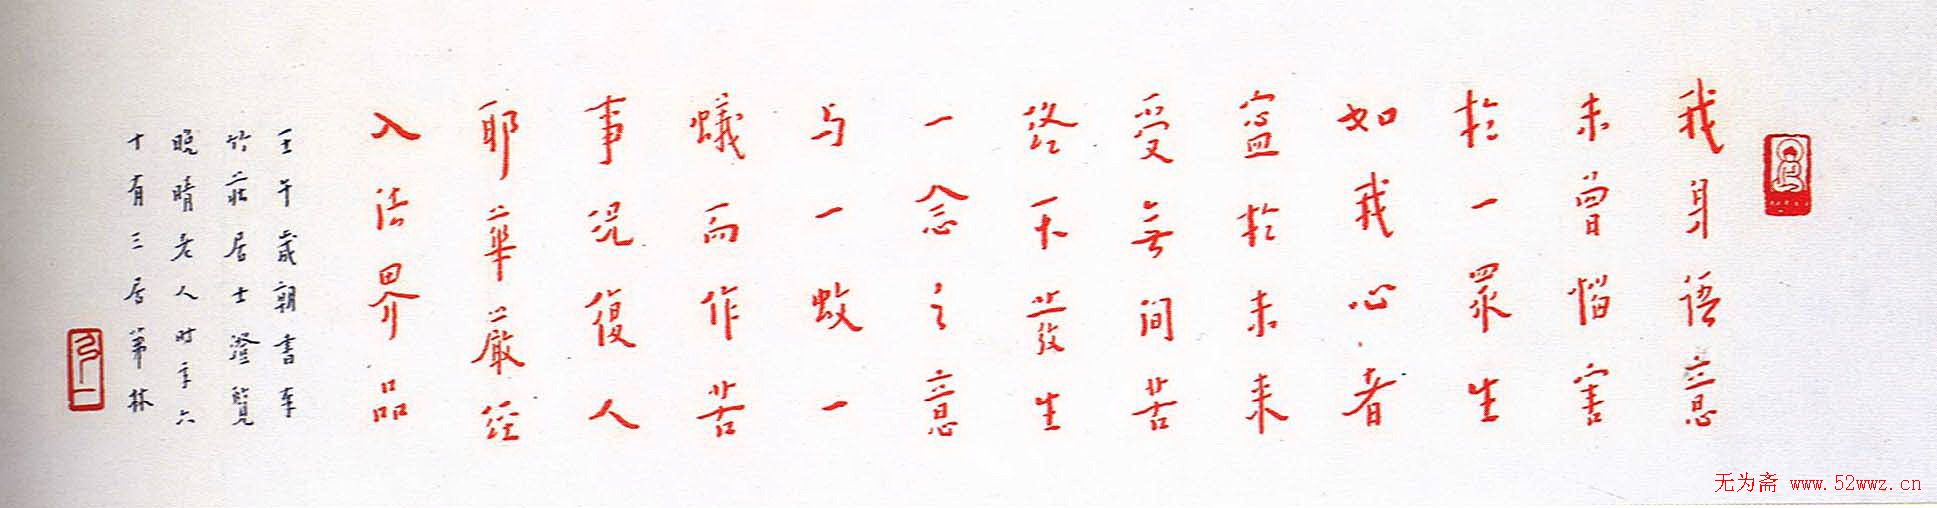 我身語意
未曾惱害
於一眾生
如我心者
寧於未来
受無间苦
終不發生
一念之意
与一蚊一
蟻而作苦
事況復人
耶華嚴经
入法界品
壬午歲朝書奉
竹莊居士澄覽
晚晴老人时年六
十有三居第林
弘一
无为斋 www.52wwz.cn